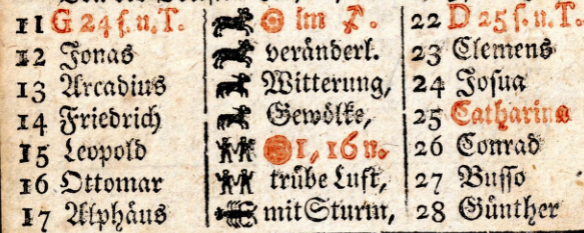 11 G 24 f. n. T. ☉ im ♐. 22 D 25 f. n. T.
12 Jonas veränderl. 23 Clemens
13 Arcadius Witterung, 24 Josua
14 Friedrich Gewölke, 25 Catharina
15 Leopold 1, 16 n. 26 Conrad
16 Ottomar trübe Luft, 27 Busso
17 Alphäus mit Sturm, 28 Günther